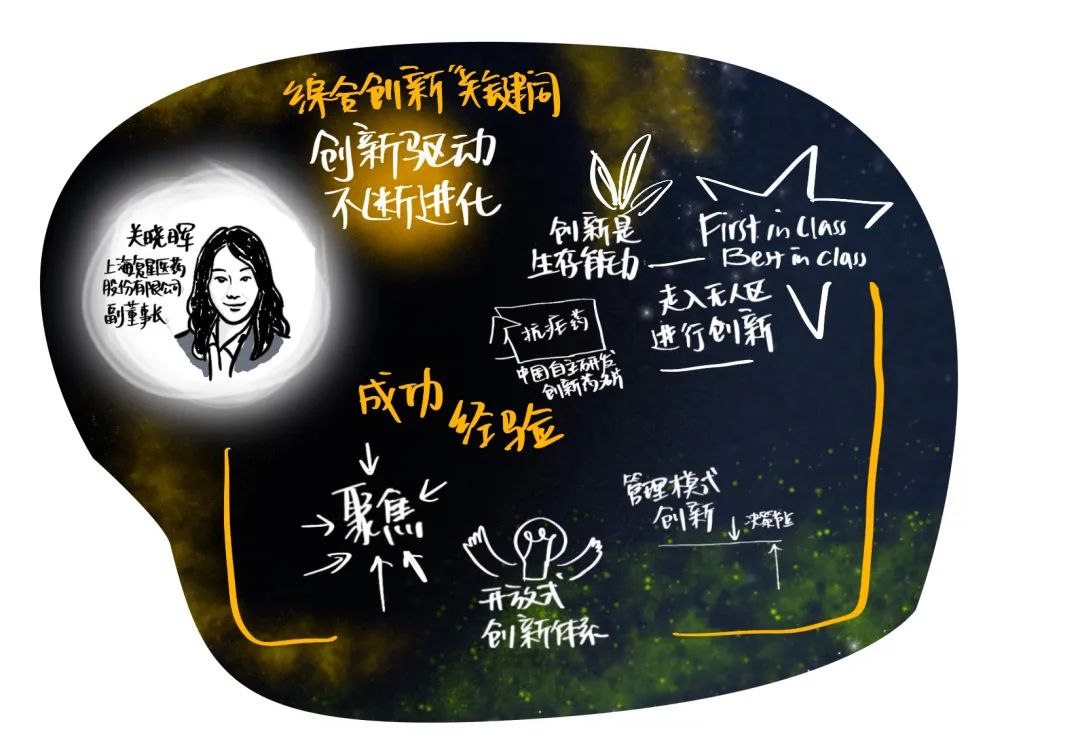 综合创新"关键词
创新驱动
不断进化
关晓晖
上海复星医药
股份有限公司
副董事长
创新是
生存能力
First in Class
Best in Class
走入无人区
进行创新
抗疟药
中国自主研发
创新药名片
成功
经验
聚焦
开放式
创新体系
管理模式
创新